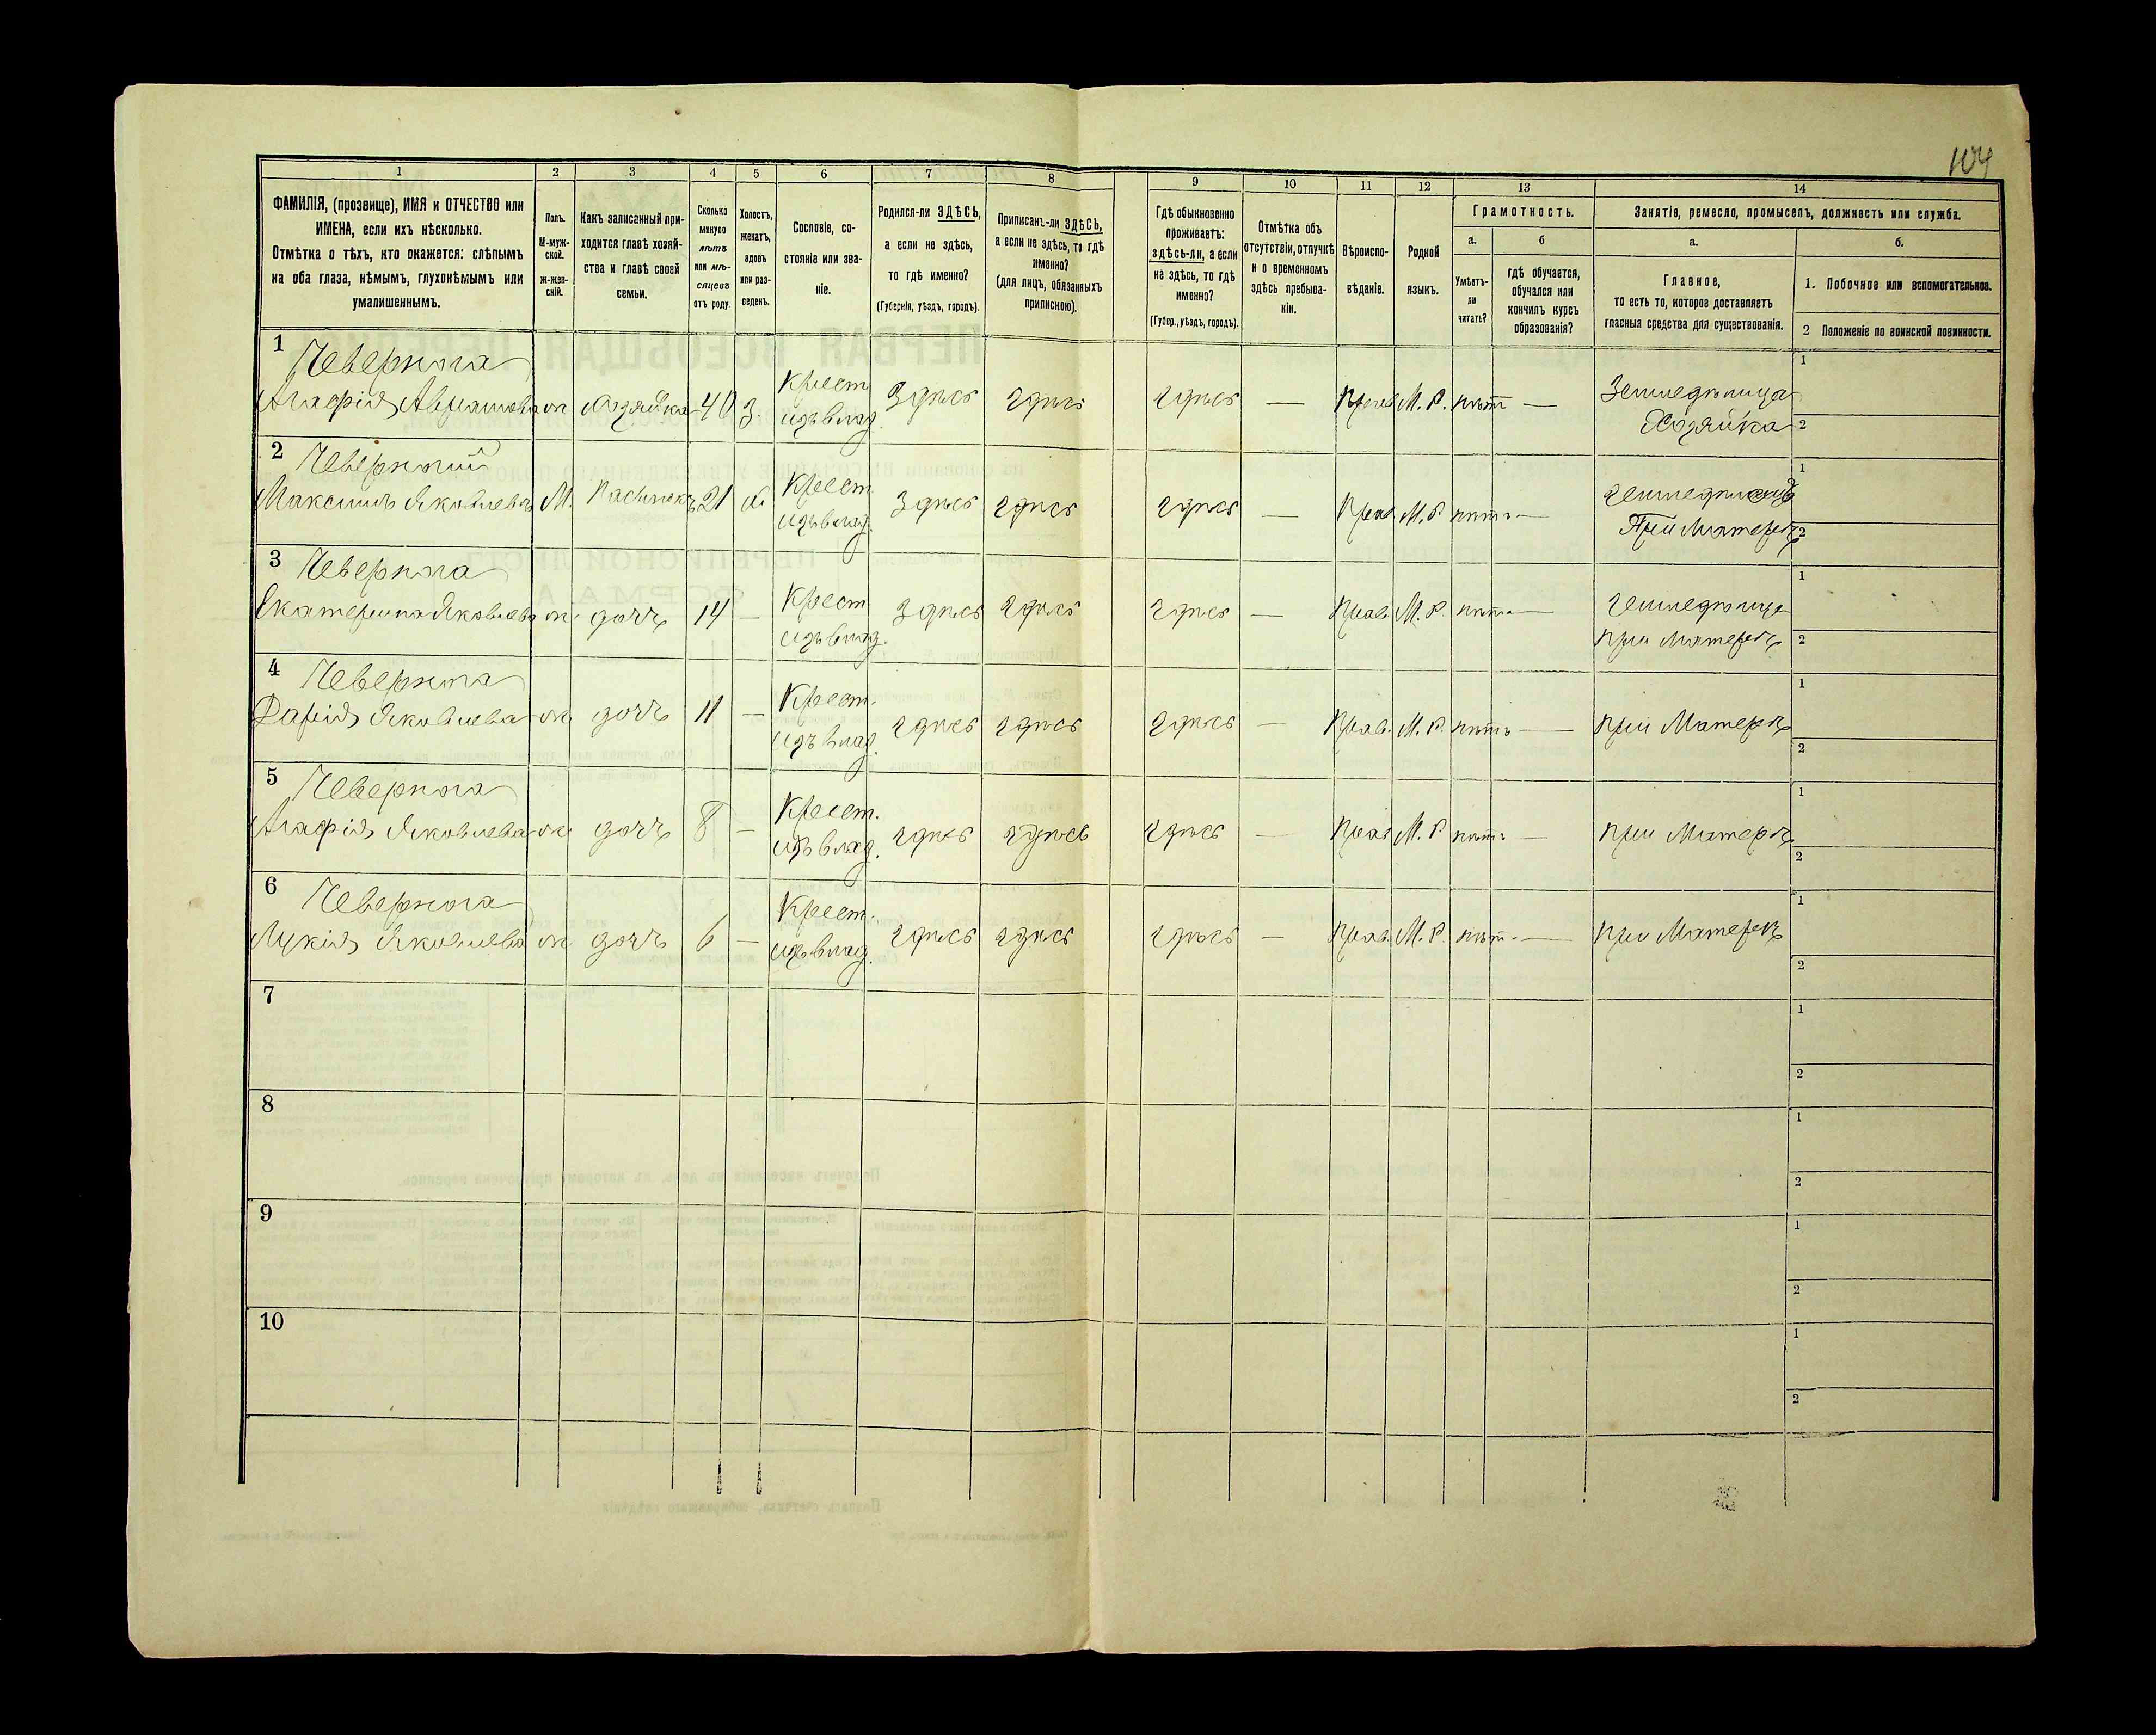 104
1 2 3 4 5 6 7 8 9 10 11 12 13 14
ФАМИЛІЯ, (прозвище), ИМЯ и ОТЧЕСТВО или ИМЕНА, если ихъ нѣсколько.
Отмѣтка о тѣхъ, кто окажется: слѣпымъ на оба глаза, нѣмымъ, глухонѣмымъ или умалишеннымъ.
Полъ. М-муж-ской. Ж-жен-скій.
Какъ записанный при-ходится главѣ хозяй-ства и главѣ своей семьи.
Сколько минуло лѣтъ или мѣ-сяцевъ отъ роду.
Холостъ, женатъ, вдовъ или раз-веденъ.
Сословіе, со-стояніе или зва-ніе.
Родился-ли ЗДѢСЬ, а если не здѣсь, то гдѣ именно?
(Губернія, уѣздъ, городъ).
Приписанъ-ли ЗДѢСЬ, а если не здѣсь, то гдѣ именно?
(для лицъ, обязанныхъ припискою).
Гдѣ обыкновенно проживаетъ: здѣсь-ли, а если не здѣсь, то гдѣ именно?
(Губер., уѣздъ, городъ).
Отмѣтка объ отсутствіи, отлучкѣ и о временномъ здѣсь пребыва-ніи.
Вѣроиспо-вѣданіе.
Родной языкъ.
Грамотность.
а. б
Умѣетъ-ли читать?
гдѣ обучается, обучался или кончилъ курсъ образованія?
Занятія, ремесло, промыселъ, должность или служба.
а. б.
Главное,
то есть то, которое доставляетъ главныя средства для существованія.
1. Побочное или вспомогательное.
2 Положеніе по воинской повинности.
1 Крест. 1
Агафія ж хозяйка 40 З. изъ влад. Здѣсь здѣсь здѣсь — Прав. М. Р. нѣтъ — Земледѣлица
Хозяйка 2
2 Крест. 1
Максимъ Яковлевъ М. Пасынокъ 21 х изъ влад. Здѣсь здѣсь здѣсь — Прав. М. Р. нѣтъ —
При Матерѣ 2
3 Крест. 1
Екатерина Яковлева ж. дочь 14 — изъ влад. Здѣсь здѣсь здѣсь — Прав. М. Р. нѣтъ — земледѣлица
при матерѣ 2
4 Крест. 1
Дарія Яковлева ж дочь 11 — изъ влад. здѣсь здѣсь здѣсь — Прав. М. Р. нѣтъ — при Матерѣ
2
5 Крест. 1
Агафія Яковлева ж дочь 8 — изъ влад. здѣсь здѣсь здѣсь — Прав М. Р. нѣтъ — при Матерѣ
2
6 Крест. 1
Лукія Яковлева ж дочь 6 — изъ влад. здѣсь здѣсь здѣсь — Прав. М. Р. нѣт. — при Матерѣ
2
7 1
2
8 1
2
9 1
2
10 1
2